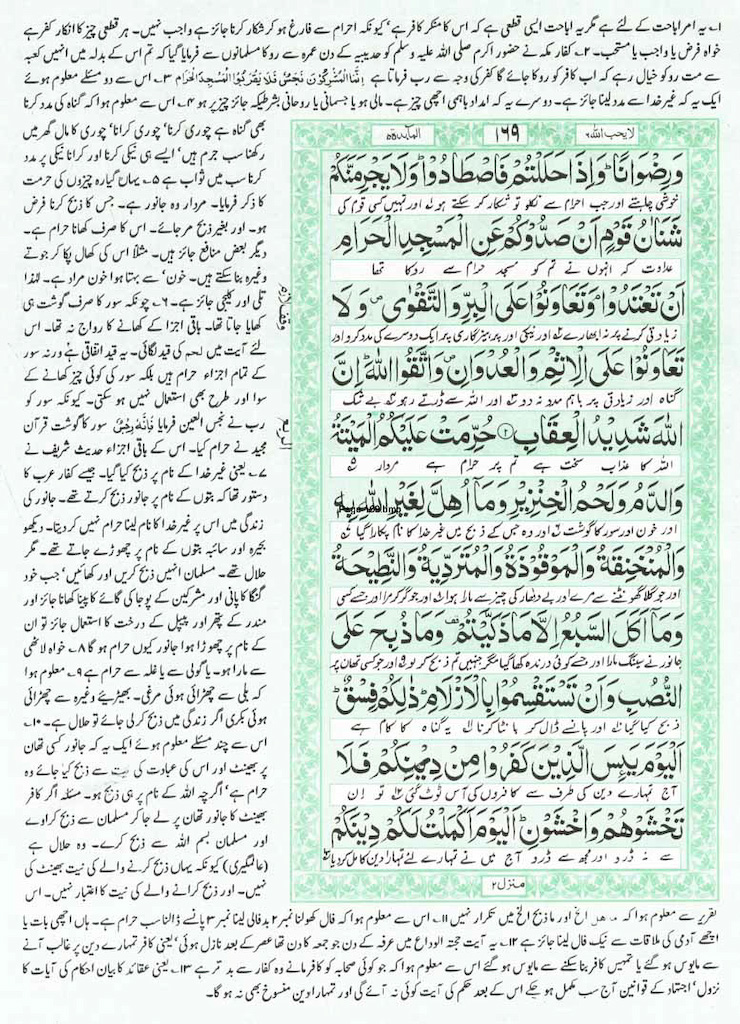 ۱؎ یہ امر اباحت کے لئے ہے مگر یہ اباحت ایسی قطعی ہے کہ اس کا منکر کافر ہے' کیونکہ احرام سے فارغ ہو کر شکار کرنا جائز ہے واجب نہیں۔ ہر قطعی چیز کا انکار کفر ہے
خواہ فرض یا واجب یا مستحب۔ ۲؎ کفار مکہ نے حضور اکرم صلی اللہ علیہ وسلم کو حدیبیہ کے دن عمرہ سے روکا مسلمانوں سے فرمایا گیا کہ تم اس کے بدلہ میں انہیں کعبہ
سے مت روکو خیال رہے کہ اب کافر کو روکا جائے گا کفر کی وجہ سے رب فرماتا ہے إِنَّمَا الْمُشْرِكُونَ نَجَسٌ فَلَا يَقْرَبُوا الْمَسْجِدَ الْحَرَامَ ۳؎ اس سے دو مسئلے معلوم ہوئے
ایک یہ کہ غیر خدا سے مدد لینا جائز ہے۔ دوسرے یہ کہ امداد باہمی اچھی چیز ہے۔ مالی ہو یا جسمانی یا روحانی بشرطیکہ جائز چیز پر ہو ۴؎ اس سے معلوم ہوا کہ گناہ کی مدد کرنا
لا یحب اللہ ۶
۱۶۹
المآئدۃ ۵
وَرِضْوَانًا ؕ وَإِذَا حَلَلْتُمْ فَاصْطَادُوا ؕ وَلَا يَجْرِمَنَّكُمْ
خوشی چاہتے اور جب احرام سے نکلو تو شکار کر سکتے ہو اور تمہیں کسی قوم کی
شَنَآنُ قَوْمٍ أَنْ صَدُّوكُمْ عَنِ الْمَسْجِدِ الْحَرَامِ
عداوت کہ انہوں نے تم کو مسجد حرام سے روکا تھا
أَنْ تَعْتَدُوا ۘ وَتَعَاوَنُوا عَلَى الْبِرِّ وَالتَّقْوٰى ۪ وَلَا
زیادتی کرنے پر نہ ابھارے اور نیکی اور پرہیزگاری پر ایک دوسرے کی مدد کرو اور
تَعَاوَنُوا عَلَى الْإِثْمِ وَالْعُدْوَانِ ۪ وَاتَّقُوا اللّٰهَ ؕ إِنَّ
گناہ اور زیادتی پر باہم مدد نہ دو اور اللہ سے ڈرتے رہو بے شک
اللّٰهَ شَدِيدُ الْعِقَابِ ۝۲ حُرِّمَتْ عَلَيْكُمُ الْمَيْتَةُ
اللہ کا عذاب سخت ہے تم پر حرام ہے مردار ۵
وَالدَّمُ وَلَحْمُ الْخِنْزِيرِ وَمَا أُهِلَّ لِغَيْرِ اللّٰهِ بِهٖ
Page-169.bmp
اور خون اور سور کا گوشت اور وہ جس کے ذبح میں غیر خدا کا نام پکارا گیا
وَالْمُنْخَنِقَةُ وَالْمَوْقُوذَةُ وَالْمُتَرَدِّيَةُ وَالنَّطِيحَةُ
اور جو گلا گھونٹنے سے مرے اور بے دھار کی چیز سے مارا ہوا اور جو گر کر مرا اور جسے کسی
وَمَا أَكَلَ السَّبُعُ إِلَّا مَا ذَكَّيْتُمْ ۟ وَمَا ذُبِحَ عَلَى
جانور نے سینگ مارا اور جسے کوئی درندہ کھا گیا مگر جنہیں تم ذبح کر لو اور جو کسی تھان پر
النُّصُبِ وَأَنْ تَسْتَقْسِمُوا بِالْأَزْلَامِ ؕ ذٰلِكُمْ فِسْقٌ ؕ
ذبح کیا گیا اور پانسے ڈال کر بانٹا کرنا یہ گناہ کا کام ہے
اَلْيَوْمَ يَئِسَ الَّذِينَ كَفَرُوا مِنْ دِينِكُمْ فَلَا
آج تمہارے دین کی طرف سے کافروں کی آس ٹوٹ گئی تو ان
تَخْشَوْهُمْ وَاخْشَوْنِ ؕ اَلْيَوْمَ أَكْمَلْتُ لَكُمْ دِينَكُمْ
سے نہ ڈرو اور مجھ سے ڈرو آج میں نے تمہارے لئے تمہارا دین کامل کر دیا
منزل ۲
بھی گناہ ہے چوری کرنا' چوری کرانا' چوری کا مال گھر میں
رکھنا سب جرم ہیں' ایسے ہی نیکی کرنا اور کرانا نیکی پر مدد
کرنا سب میں ثواب ہے ۵؎ یہاں گیارہ چیزوں کی حرمت
کا ذکر فرمایا۔ مردار وہ جانور ہے۔ جس کا ذبح کرنا فرض
ہو۔ اور بغیر ذبح مر جائے۔ اس کا صرف کھانا حرام ہے۔
دیگر بعض منافع جائز ہیں۔ مثلاً اس کی کھال پکا کر جوتے
وغیرہ بنا سکتے ہیں۔ خون' سے بہتا ہوا خون مراد ہے۔ لہٰذا
تلی اور کلیجی جائز ہے۔ ۶؎ چونکہ سور کا صرف گوشت ہی
کھایا جاتا تھا۔ باقی اجزا کے کھانے کا رواج نہ تھا۔ اس
لئے آیت میں لحم کی قید لگائی۔ یہ قید اتفاقی ہے ورنہ سور
کے تمام اجزاء حرام ہیں بلکہ سور کی کوئی چیز کھانے کے
سوا اور طرح بھی استعمال نہیں ہو سکتی۔ کیونکہ سور کو
رب نے نجس العین فرمایا فَإِنَّهُ رِجْسٌ سور کا گوشت قرآن
مجید نے حرام کیا۔ اس کے باقی اجزاء حدیث شریف نے
۷؎ یعنی غیر خدا کے نام پر ذبح کیا گیا۔ جیسے کفار عرب کا
دستور تھا کہ بتوں کے نام پر جانور ذبح کرتے تھے۔ جانور کی
زندگی میں اس پر غیر خدا کا نام لینا حرام نہیں کر دیتا۔ دیکھو
بحیرہ اور سائبہ بتوں کے نام پر چھوڑے جاتے تھے۔ مگر
حلال تھے۔ مسلمان انہیں ذبح کریں اور کھائیں' جب خود
گنگا کا پانی اور مشرکین کے پوجا کی گائے کا پینا کھانا جائز اور
مندر کے پتھر اور پیپل کے درخت کا استعمال جائز تو ان
کے نام پر چھوڑا ہوا جانور کیوں حرام ہو گا ۸؎ خواہ لاٹھی
سے مارا ہو۔ یا گولی سے یا غلہ سے حرام ہے ۹؎ معلوم ہوا
کہ بلی سے چھڑائی ہوئی مرغی۔ بھیڑیئے وغیرہ سے چھڑائی
ہوئی بکری اگر زندگی میں ذبح کر لی جائے تو حلال ہے۔ ۱۰؎
اس سے چند مسئلے معلوم ہوئے ایک یہ کہ جانور کسی تھان
پر بھینٹ اور اس کی عبادت کی نیت سے ذبح کیا جائے وہ
حرام ہے' اگرچہ اللہ کے نام پر ہی ذبح ہو۔ مسئلہ اگر کافر
بھینٹ کا جانور تھان پر لے جا کر مسلمان سے ذبح کراوے
اور مسلمان بسم اللہ سے ذبح کرے۔ وہ حلال ہے
(عالمگیری) کیونکہ یہاں ذبح کرنے والے کی نیت بھینٹ کی
نہیں۔ اور ذبح کرانے والے کی نیت کا اعتبار نہیں۔ اس
تقریر سے معلوم ہوا کہ ما اھل الخ اور ما ذبح الخ میں تکرار نہیں ۱۱؎ اس سے معلوم ہوا کہ فال کھولنا نمبر ۲ بدفالی لینا نمبر ۳ پانسے ڈالنا سب حرام ہے۔ ہاں اچھی بات یا
اچھے آدمی کی ملاقات سے نیک فال لینا جائز ہے ۱۲؎ یہ آیت حجۃ الوداع میں عرفہ کے دن جو جمعہ کا دن تھا عصر کے بعد نازل ہوئی' یعنی کافر تمہارے دین پر غالب آنے
سے مایوس ہو گئے یا تمہیں کافر بنا سکنے سے مایوس ہو گئے اس سے معلوم ہوا کہ جو کوئی صحابہ کو کافر مانے وہ کفار سے بد تر ہے ۱۳؎ یعنی عقائد کا بیان احکام کی آیات کا
نزول' اجتہاد کے قوانین آج سب مکمل ہو چکے اس کے بعد حکم کی آیت کوئی نہ آئے گی اور تمہارا دین منسوخ بھی نہ ہو گا۔